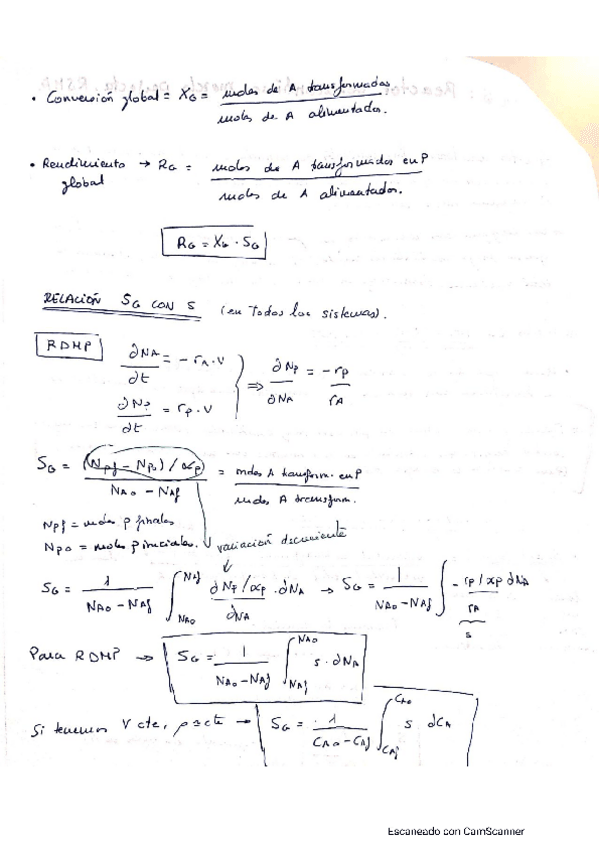 • Conversión global = XG = moles de A transformados / moles de A alimentados.
• Rendimiento global → RG = moles de A transformados en P / moles de A alimentados.
RG = XG · SG
RELACIÓN SG CON S (en todos los sistemas).
RDMP ∂NA/∂t = - rA · V
∂NP/∂t = rP · V
⇒ ∂NP/∂NA = - rP/rA
SG = (NPf - NPo) / αP / NAo - NAf = moles A transform. en P / moles A transform.
NPf = moles P finales
NPo = moles P iniciales. variación decreciente
SG = 1/(NAo - NAf) ∫NAo NAf ∂NP/αP/∂NA · ∂NA → SG = 1/(NAo - NAf) ∫ - rP/αP/rA ∂NA
s
Para RDMP → SG = 1/(NAo - NAf) ∫NAf NAo s · ∂NA
Si tenemos V cte, ρ cte → SG = 1/(CAo - CAf) ∫CAf CAo s dCA
Escaneado con CamScanner